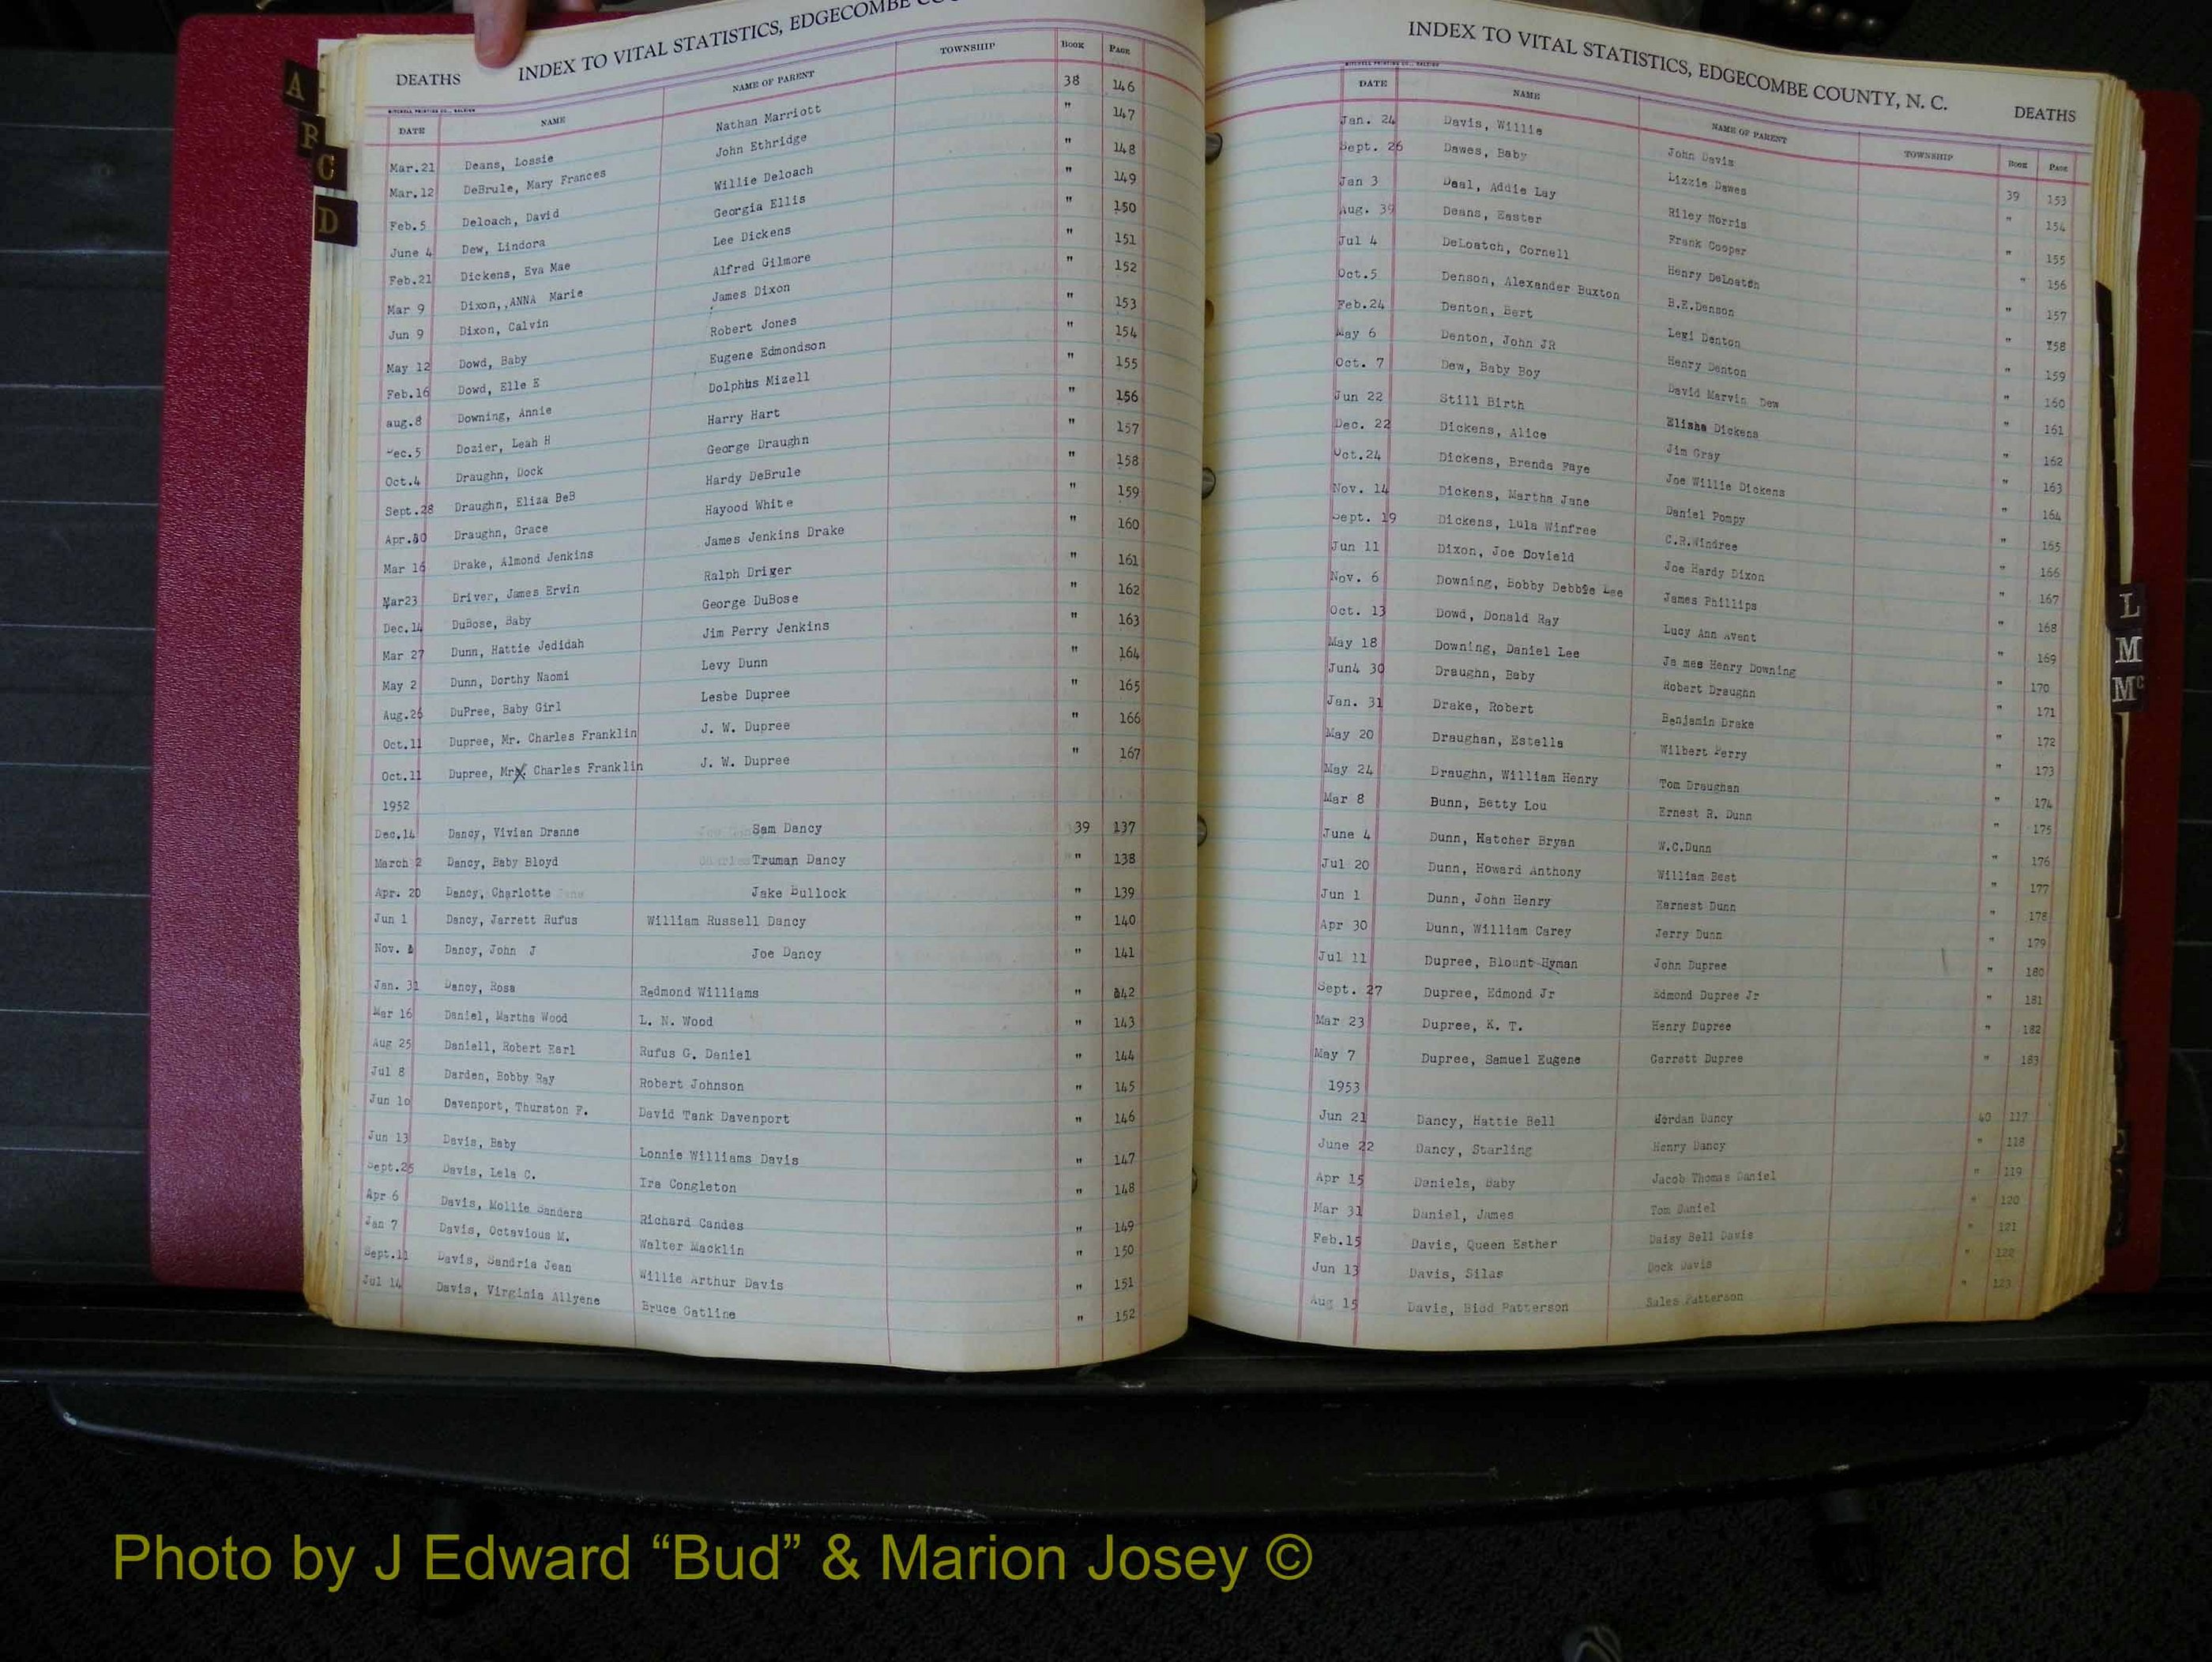 A
B
C
D
DEATHS INDEX TO VITAL STATISTICS, EDGECOMBE
MITCHELL PRINTING CO., RALEIGH
DATE NAME NAME OF PARENT TOWNSHIP BOOK PAGE
Mar.21 Deans, Lossie Nathan Marriott 38 146
Mar.12 DeBrule, Mary Frances John Ethridge " 147
Feb.5 Deloach, David Willie Deloach " 148
June 4 Dew, Lindora Georgia Ellis " 149
Feb.21 Dickens, Eva Mae Lee Dickens " 150
Mar 9 Dixon,,ANNA Marie Alfred Gilmore " 151
Jun 9 Dixon, Calvin James Dixon " 152
May 12 Dowd, Baby Robert Jones " 153
Feb.16 Dowd, Elle E Eugene Edmondson " 154
aug.8 Downing, Annie Dolphus Mizell " 155
Dec.5 Dozier, Leah H Harry Hart " 156
Oct.4 Draughn, Dock George Draughn " 157
Sept.28 Draughn, Eliza BeB Hardy DeBrule " 158
Apr. Draughn, Grace Hayood White " 159
Mar 16 Drake, Almond Jenkins James Jenkins Drake " 160
Mar23 Driver, James Ervin Ralph Driger " 161
Dec.14 DuBose, Baby George DuBose " 162
Mar 27 Dunn, Hattie Jedidah Jim Perry Jenkins " 163
May 2 Dunn, Dorthy Naomi Levy Dunn " 164
Aug.26 DuPree, Baby Girl Lesbe Dupree " 165
Oct.11 Dupree, Mr. Charles Franklin J. W. Dupree " 166
Oct.11 Dupree, Mr. Charles Franklin J. W. Dupree " 167
1952
Dec.14 Dancy, Vivian Dranne Sam Dancy 39 137
March 2 Dancy, Baby Bloyd Truman Dancy " 138
Apr. 20 Dancy, Charlotte Jake Bullock " 139
Jun 1 Dancy, Jarrett Rufus William Russell Dancy " 140
Nov. Dancy, John J Joe Dancy " 141
Jan. 31 Dancy, Rosa Redmond Williams " 142
Mar 16 Daniel, Martha Wood L. N. Wood " 143
Aug 25 Daniell, Robert Earl Rufus G. Daniel " 144
Jul 8 Darden, Bobby Ray Robert Johnson " 145
Jun 10 Davenport, Thurston F. David Tank Davenport " 146
Jun 13 Davis, Baby Lonnie Williams Davis " 147
Sept.25 Davis, Lela C. Ira Congleton " 148
Apr 6 Davis, Mollie Sanders Richard Candes " 149
Jan 7 Davis, Octavious M. Walter Macklin " 150
Sept.11 Davis, Sandria Jean Willie Arthur Davis " 151
Jul 14 Davis, Virginia Allyene Bruce Gatline " 152
INDEX TO VITAL STATISTICS, EDGECOMBE COUNTY, N. C. DEATHS
MITCHELL PRINTING CO., RALEIGH
DATE NAME NAME OF PARENT TOWNSHIP BOOK PAGE
Jan. 24 Davis, Willie John Davis 39 153
Sept. 26 Dawes, Baby Lizzie Dawes " 154
Jan 3 Deal, Addie Lay Riley Norris " 155
Aug. 39 Deans, Easter Frank Cooper " 156
Jul 4 DeLoatch, Cornell Henry DeLoatch " 157
Oct.5 Denson, Alexander Buxton B.E.Denson " 158
Feb.24 Denton, Bert Lexi Denton " 159
May 6 Denton, John JR Henry Denton " 160
Oct. 7 Dew, Baby Boy David Marvin Dew " 161
Jun 22 Still Birth Elisha Dickens " 162
Dec. 22 Dickens, Alice Jim Gray " 163
Oct.24 Dickens, Brenda Faye Joe Willie Dickens " 164
Nov. 14 Dickens, Martha Jane Daniel Pompy " 165
Sept. 19 Dickens, Lula Winfree C.R.Windree " 166
Jun 11 Dixon, Joe Dovield Joe Hardy Dixon " 167
Nov. 6 Downing, Bobby Debbie Lee James Phillips " 168
Oct. 13 Dowd, Donald Ray Lucy Ann Avent " 169
May 18 Downing, Daniel Lee Ja mes Henry Downing " 170
Jun4 30 Draughn, Baby Robert Draughn " 171
Jan. 31 Drake, Robert Benjamin Drake " 172
May 20 Draughan, Estella Wilbert Perry " 173
May 24 Draughn, William Henry Tom Draughan " 174
Mar 8 Dunn, Betty Lou Ernest R. Dunn " 175
June 4 Dunn, Hatcher Bryan W.C.Dunn " 176
Jul 20 Dunn, Howard Anthony William Best " 177
Jun 1 Dunn, John Henry Earnest Dunn " 178
Apr 30 Dunn, William Carey Jerry Dunn " 179
Jul 11 Dupree, Blount Hyman John Dupree " 180
Sept. 27 Dupree, Edmond Jr Edmond Dupree Jr " 181
Mar 23 Dupree, K. T. Henry Dupree " 182
May 7 Dupree, Samuel Eugene Garrett Dupree " 183
1953
Jun 21 Dancy, Hattie Bell Jordan Dancy 40 117
June 22 Dancy, Starling Henry Dancy " 118
Apr 15 Daniels, Baby Jacob Thomas Daniel " 119
Mar 31 Daniel, James Tom Daniel " 120
Feb.15 Davis, Queen Esther Daisy Bell Davis 121
Jun 13 Davis, Silas Dock Davis " 122
Aug 15 Davis, Bidd Patterson Sales Patterson " 123
L
M
Mc
Photo by J Edward “Bud” & Marion Josey ©